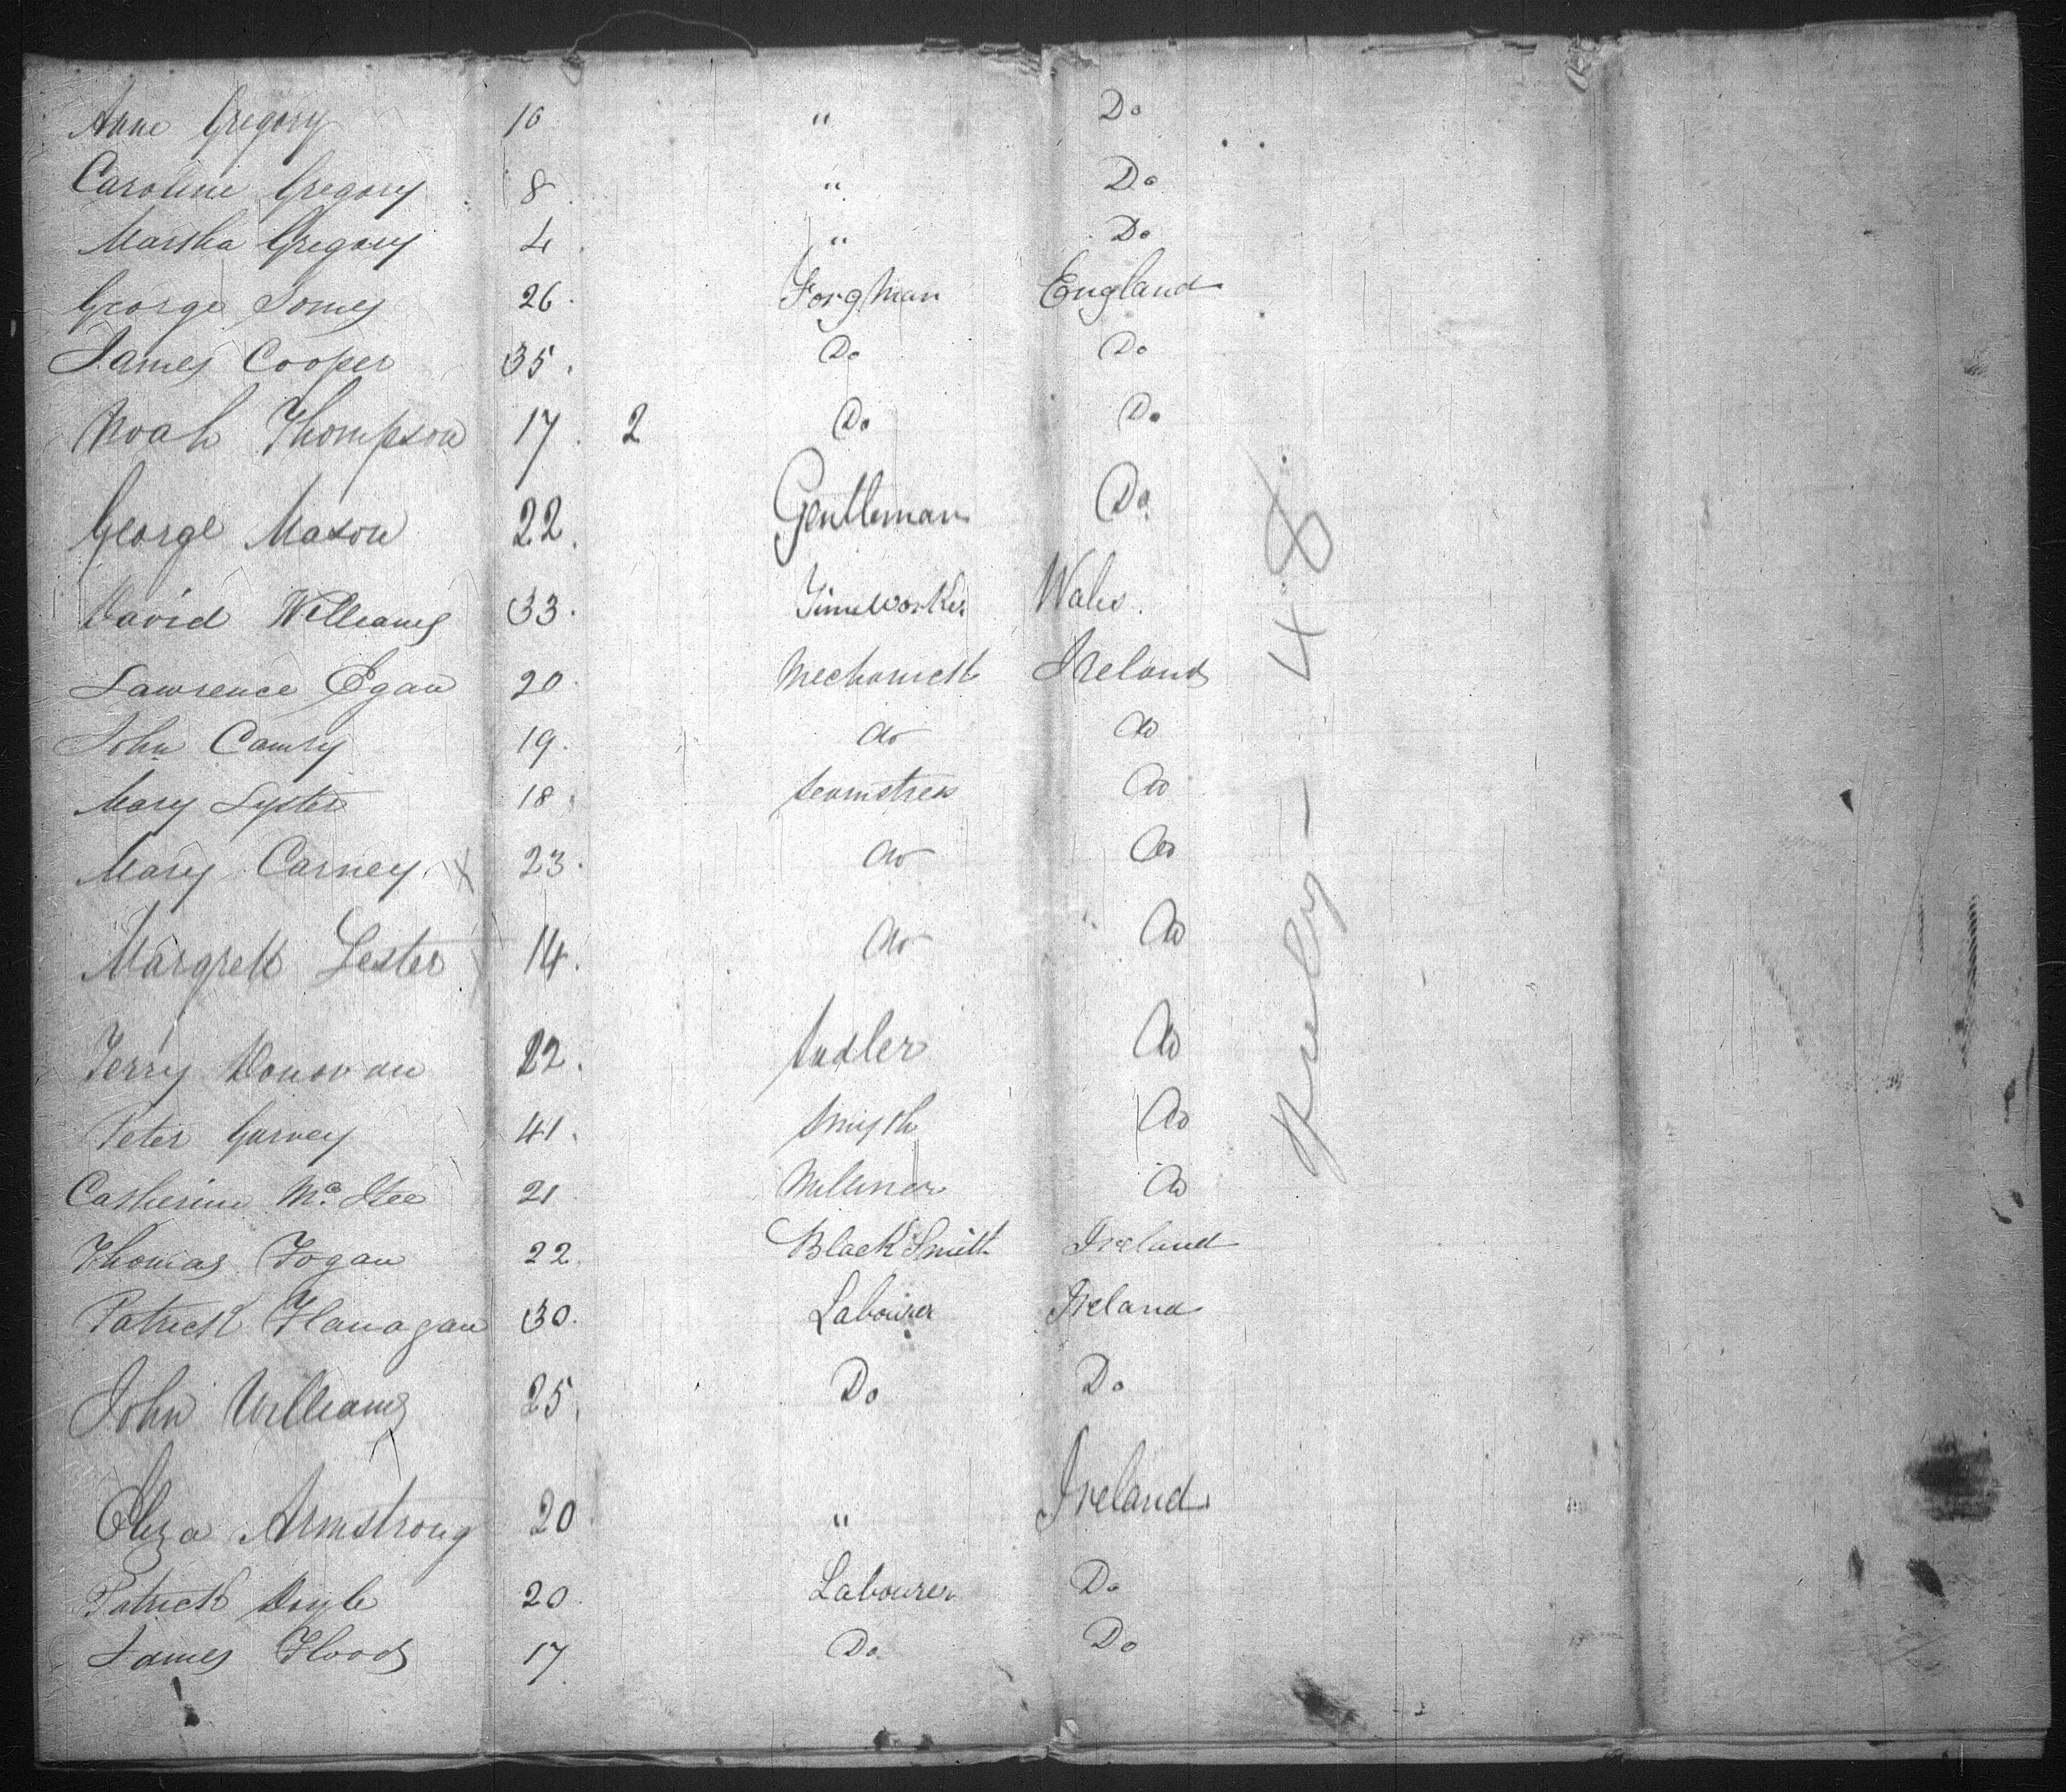 Anne Gregory 10 " Do
Caroline Gregory 8 " Do
Martha Gregory 4 " Do
George Jones 26 Forgman England
James Cooper 35 Do Do
Noah Thompson 17 2 Do Do
George Mason 22 Gentleman Do
David Williams 33 Timeworker Wales
Lawrence Egan 20 Mechanick Ireland
John 19 do do
Mary Lyster 18 Seamstress do
Mary Carney 23 do do
Margrett Lester 14 do do
Terry Donovan 22 Sadler do
Peter Garvey 41 Smyth do
Catherine Mc 21 Milliner do
Thomas Fogan 22 Black Smith Ireland
Patrick Flanagan 30 Labourer Ireland
John Williams 25 Do Do
Eliza Armstrong 20 " Ireland
Patrick Doyle 20 Labourer Do
James Flood 17 Do Do
48